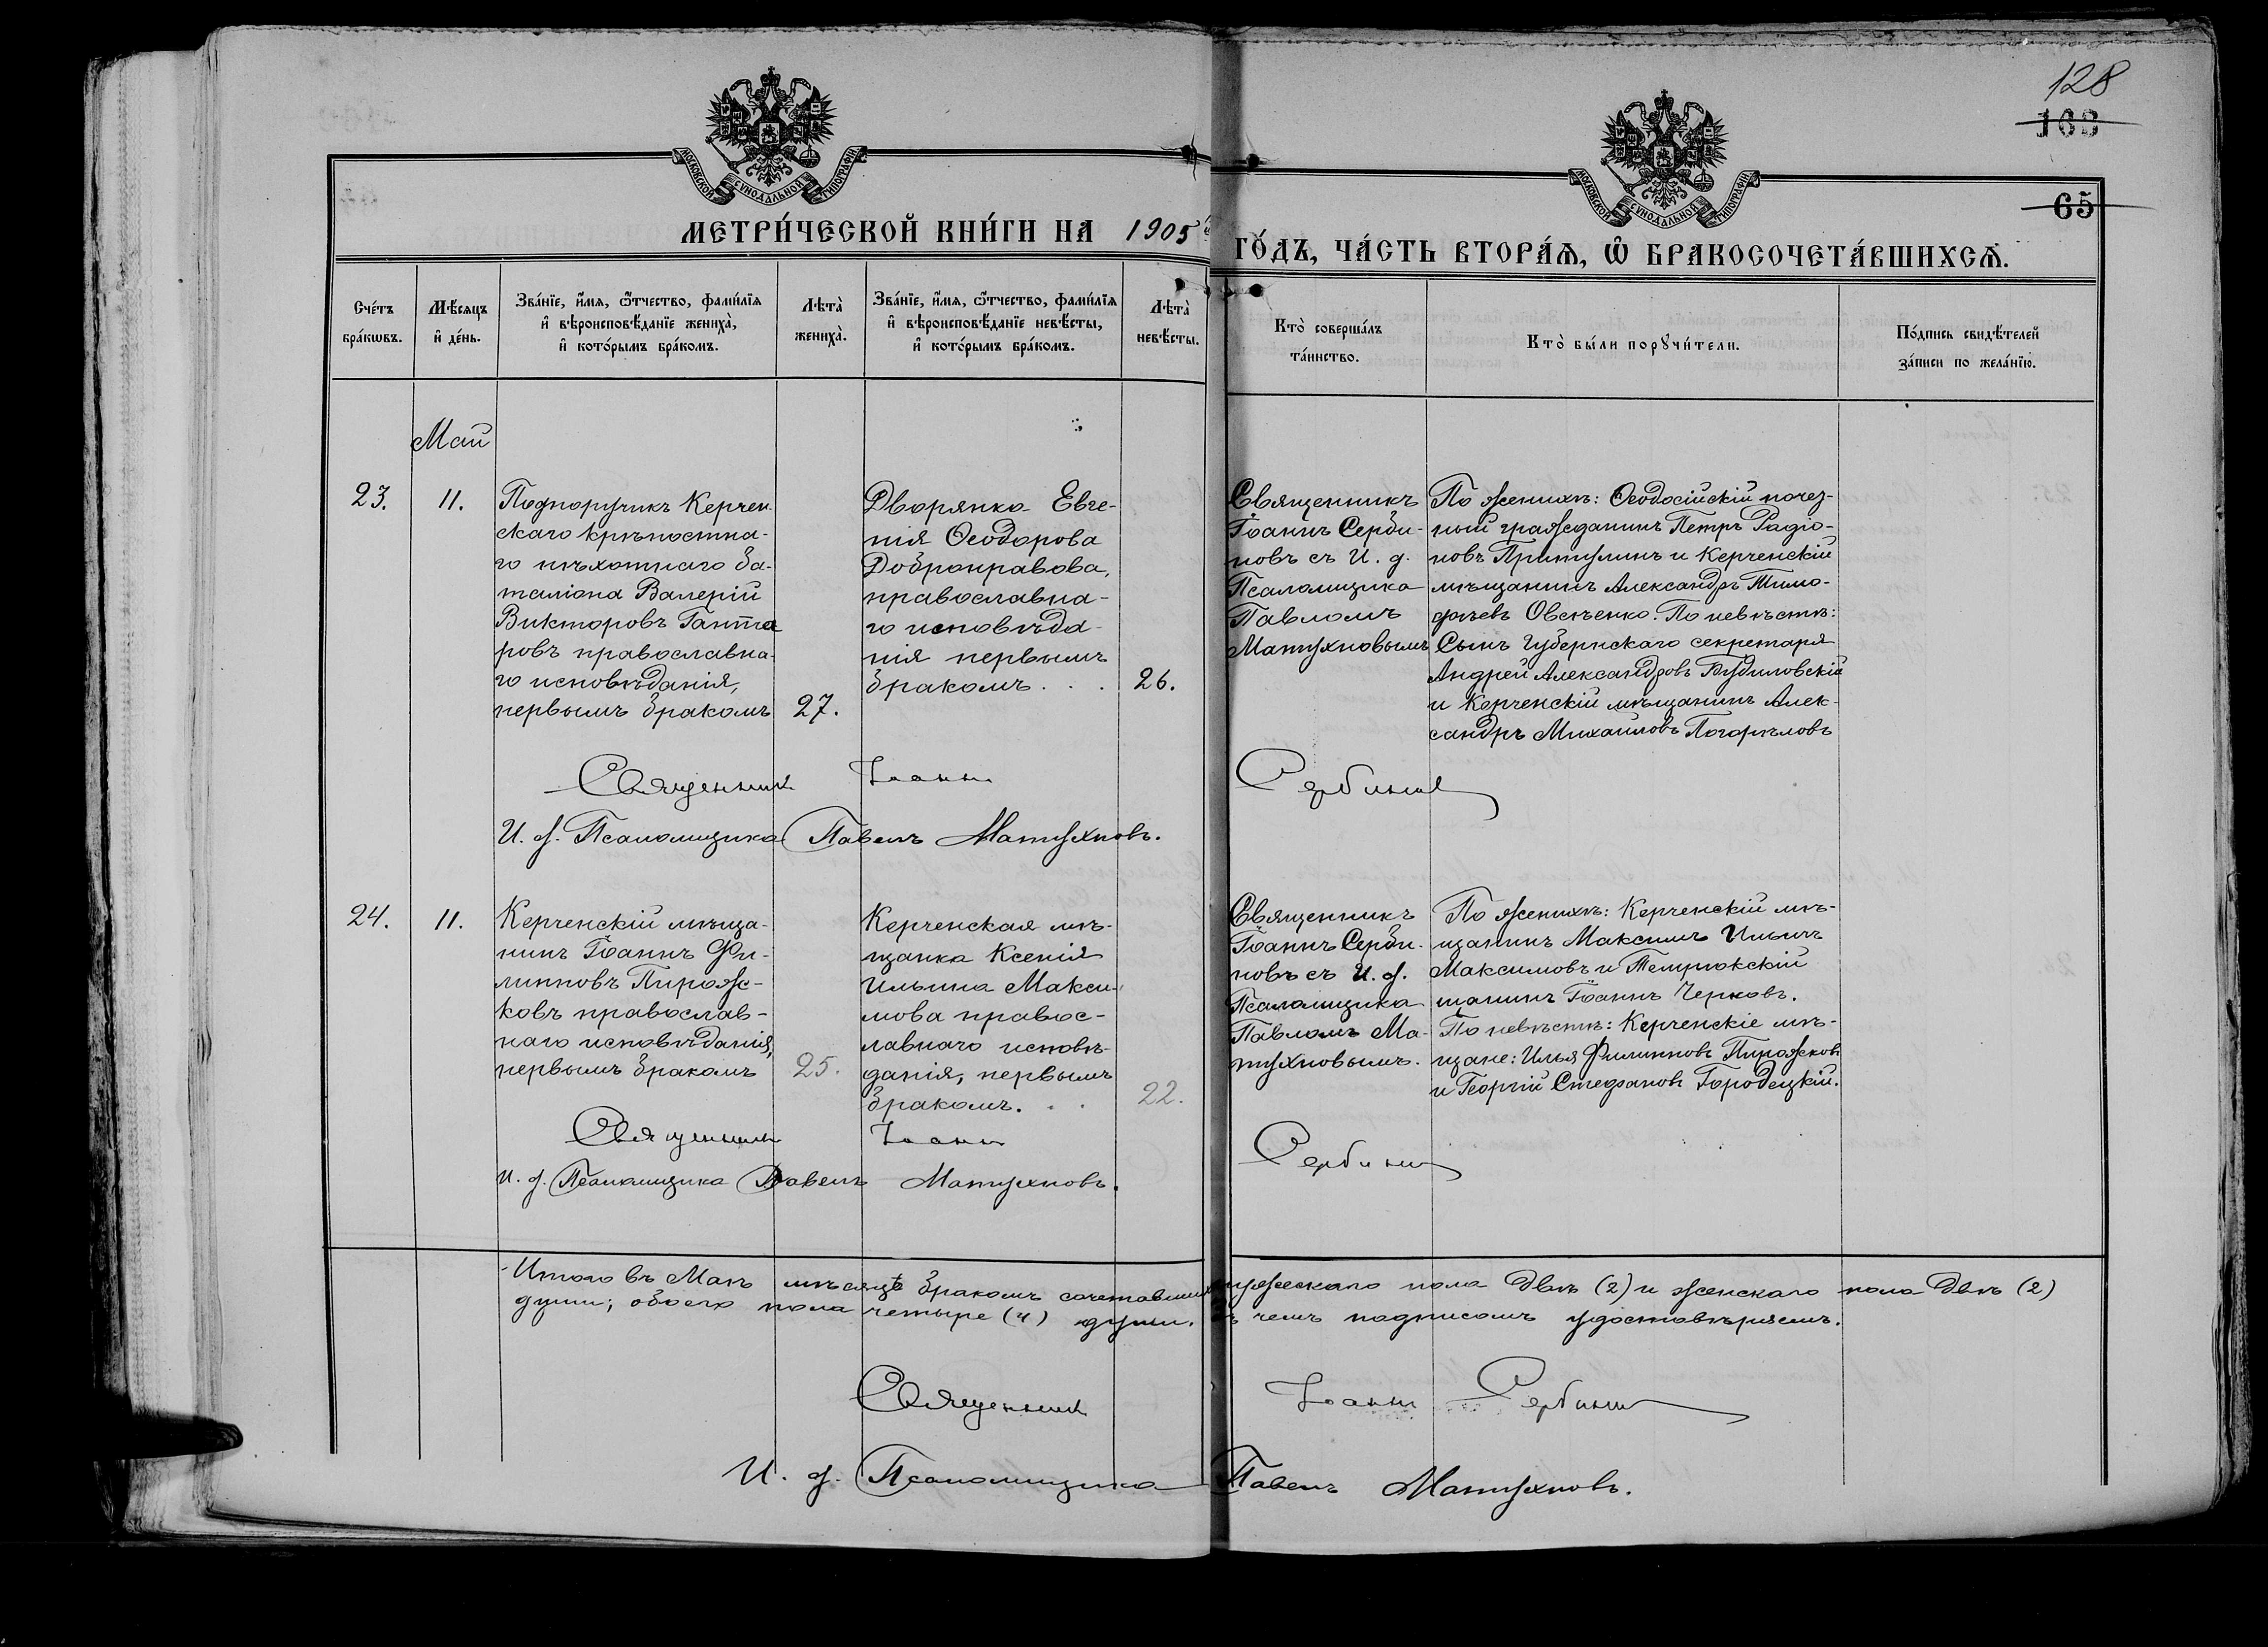 128
163
65
МОСКОВСКОЙ СѴНОДАЛЬНОЙ ТИПОГРАФІИ
МОСКОВСКОЙ СѴНОДАЛЬНОЙ ТИПОГРАФІИ
МЕТРИ́ЧЕСКОЙ КНИ́ГИ НА 1905 ГО́ДЪ, ЧА́СТЬ ВТОРА́Ѧ, Ѡ҆ БРАКОСОЧЕТА́ВШИХСѦ.
Сче́тъ
бра́кѡвъ.
Мѣ́сяцъ
и҆ де́нь.
Зва́нїе, и҆́мѧ, ѻ҆́тчество, фами́лїѧ
и҆ вѣроисповѣ́данїе жениха̀,
и҆ кото́рымъ бра́комъ.
Лѣта̀
жениха̀.
Зва́нїе, и҆́мѧ, ѻ҆́тчество, фами́лїѧ
и҆ вѣроисповѣ́данїе невѣ́сты,
и҆ кото́рымъ бра́комъ.
Лѣта̀
невѣ́сты.
Кто̀ соверша́лъ
та́инство.
Кто̀ бы́ли порꙋчи́тели.
По́дпись свидѣ́телей
за́писи по жела́нїю.
Май
23.
11.
Подпоручикъ Керчен-
скаго крѣпостна-
го пѣхотнаго ба-
таліона Валерій
Викторовъ Гапта
ровъ православна-
го исповѣданія,
первымъ бракомъ
27.
Дворянка Евге-
нія Ѳеодорова
Добронравова,
православна-
го исповѣда-
нія первымъ
бракомъ . . .
26.
Священникъ
Іоаннъ Серби-
новъ съ И. д.
Псаломщика
Павломъ
Матухновымъ
По женихѣ: Ѳеодосійскій почез-
ный гражданинъ Петръ Радіо-
новъ Притулинъ и Керченскій
мѣщанинъ Александръ Тимо-
фѣевъ Овсѣенко. По невѣстѣ:
Сынъ Губернскаго секретаря
Андрей Александровъ Будиловскій
и Керченскій мѣщанинъ Алек-
сандръ Михаиловъ Погорѣловъ
Священникъ Іоаннъ Сербиновъ
И. д. Псаломщика Павелъ Матухновъ.
24.
11.
Керченскій мѣща-
нинъ Іоаннъ Фи-
липповъ Пирож-
ковъ православ-
наго исповѣданія,
первымъ бракомъ
25.
Керченская мѣ-
щанка Ксенія
Ильина Макси-
мова правос-
лавнаго исповѣ-
данія, первымъ
бракомъ. . .
22.
Священникъ
Іоаннъ Серби-
новъ съ И. д.
Псаломщика
Павломъ Ма-
тухновымъ.
По женихѣ: Керченскій мѣ-
щанинъ Максимъ Ильичъ
Максимовъ и Темрюкскій
щанинъ Іоаннъ Черковъ.
По невѣстѣ: Керченскіе мѣ-
щане: Илья Филипповъ Пирожковъ
и Георгій Стефановъ Городецкій.
Священникъ Іоаннъ Сербиновъ
И. д. Псаломщика Павелъ Матухновъ.
Итого въ Маѣ мѣсяцѣ бракомъ сочетавших мужескаго пола двѣ (2) и женскаго пола двѣ (2)
души; обоего пола четыре (4) души. въ чемъ подписомъ удостовѣряемъ.
Священникъ Іоаннъ Сербиновъ
И. д. Псаломщика Павелъ Матухновъ.